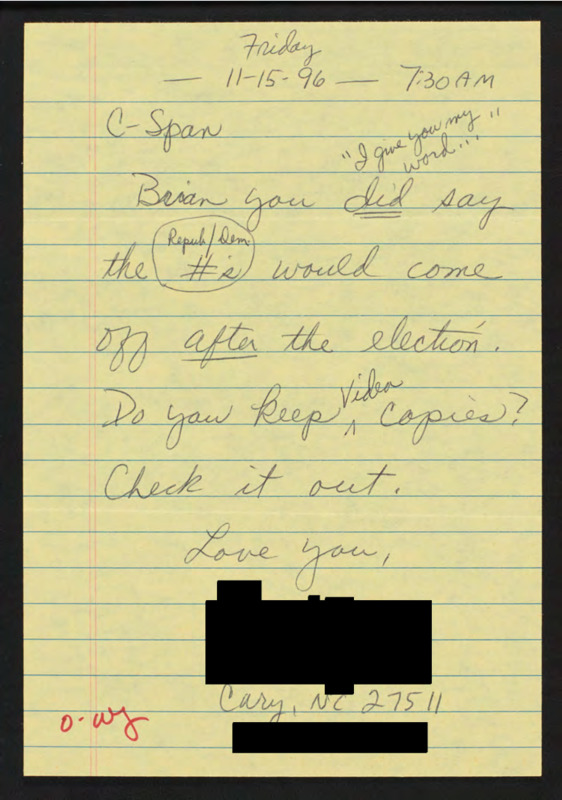 Friday
— 11-15-96 — 7:30 AM
C-Span
"I give you my
word..."
Brian you did say
Repub/Dem.
the #'s would come
off after the election.
Video
Do you keep ^ Copies?
Check it out.
Love you,
Cary, NC 27511